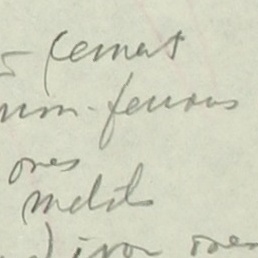 - Cement
non-ferrous
ores
metals
) iron ores